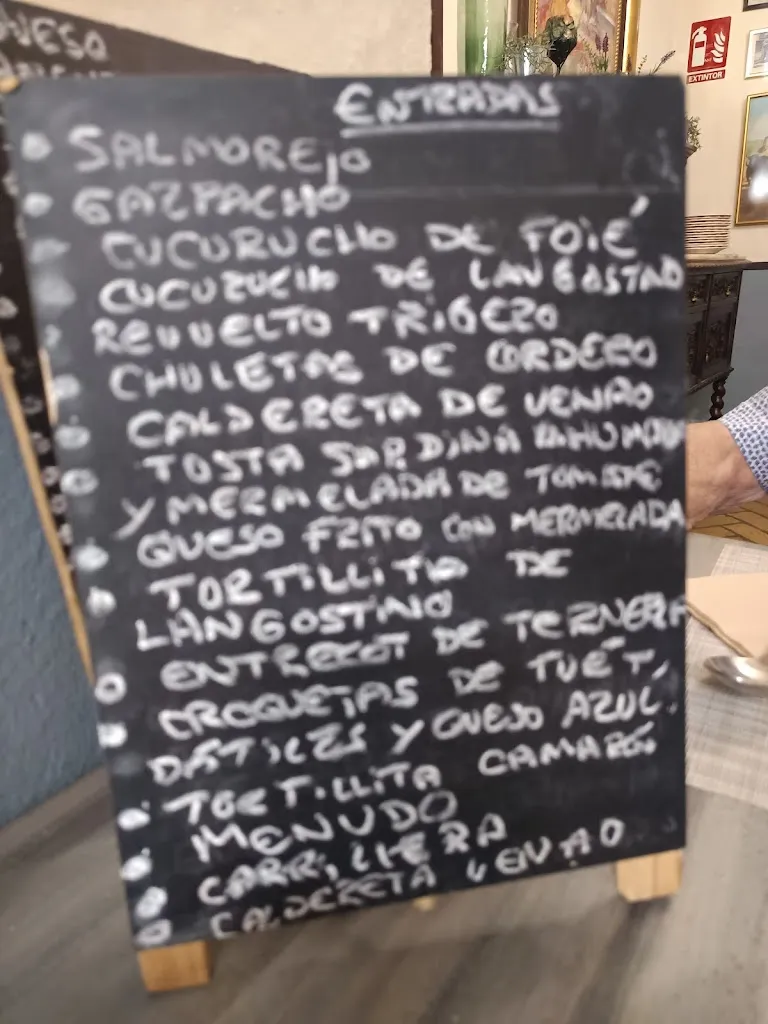 QUESO
EXTINTOR
ENTRADAS
SALMOREJO
GAZPACHO
CUCURUCHO DE FOIÉ
CUCURUCHO DE LANGOSTINO
REVUELTO TRIGERO
CHULETAS DE CORDERO
CALDERETA DE VENAO
TOSTA SARDINA AHUMADA
Y MERMELADA DE TOMATE
QUESO FRITO CON MERMELADA
TORTILLITA DE
LANGOSTINO
ENTRECOT DE TERNERA
CROQUETAS DE TUÉT,
DÁTILES Y QUESO AZUL.
TORTILLITA CAMARÓ
MENUDO
CARRILLERA
CALDERETA VENAO